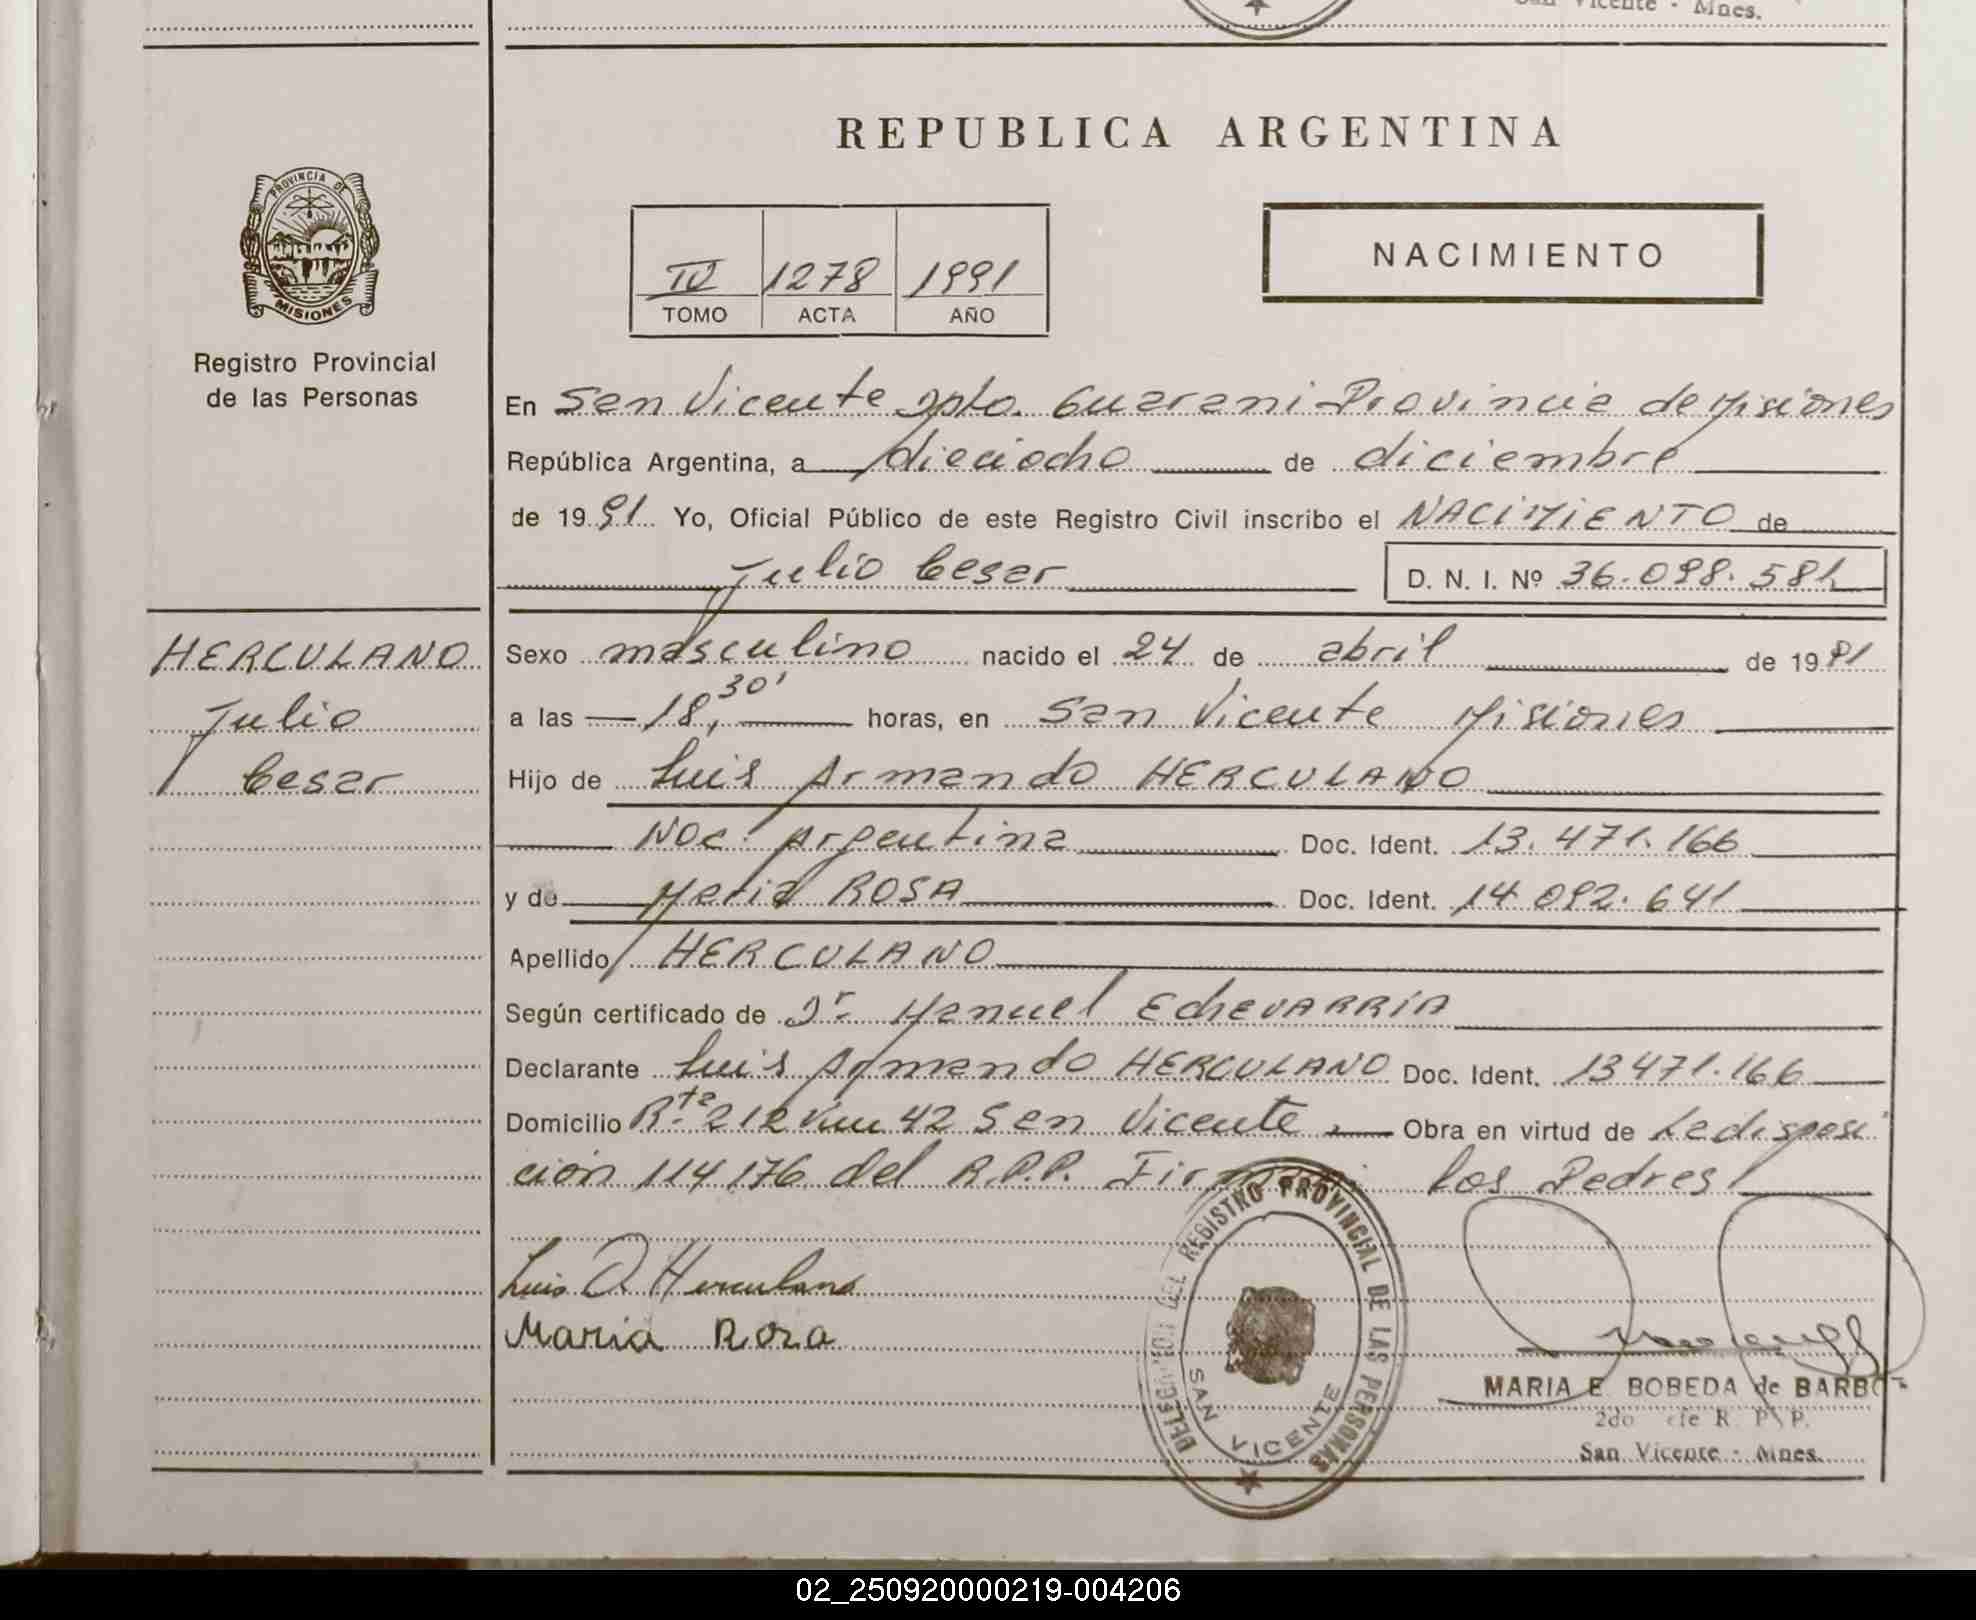 San Vicente - Mnes.
REPUBLICA ARGENTINA
PROVINCIA DE
MISIONES
Registro Provincial
de las Personas
IV 1278 1991
TOMO ACTA AÑO
NACIMIENTO
En San Vicente Dpto. Guarani Provincia de Misiones
República Argentina, a dieciocho de diciembre
de 1991 Yo, Oficial Público de este Registro Civil inscribo el NACIMIENTO de
Julio Cesar D. N. I. Nº 36.098.581
HERCULANO
Julio
Cesar
Sexo masculino nacido el 24 de abril de 19
a las 18,30' horas, en San Vicente Misiones
Hijo de Luis Armando HERCULANO
Nac. Argentina Doc. Ident. 13.471.166
y de Maria ROSA Doc. Ident. 14.092.641
Apellido HERCULANO
Según certificado de Dr. Manuel EchEVARRIA
Declarante Luis Armando HERCULANO Doc. Ident. 13471.166
Domicilio Rta. 212 Km 42 San Vicente Obra en virtud de La disposi
ción 114176 del R.P.P. Firman: los Padres
Luis A Herculano
Maria Rosa
DELEGACION DEL REGISTRO PROVINCIAL DE LAS PERSONAS
SAN VICENTE
MARIA E. BOBEDA de BARBO
2do efe R. P. P.
San Vicente - Mnes.
02_250920000219-004206